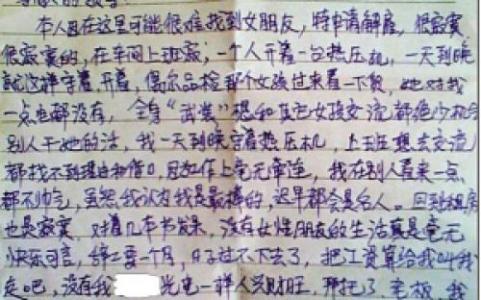 本人因在这里可能很难找到女朋友,特申请辞启,很寂寞
很寂寞的,在车间上班寂,一个人开着一台热压机,一天到晚
就这样守着,开着,偶尔品检那个女孩过来看一下货,她对我
一点电都没有,全身“武装”想和其它女孩交流都绝少机会
别人干她的活,我一天到晚守着热压机,上班想去交流
都找不到理由和借口,因工作上毫无牵连,我在别人看来一点
都不帅气,虽然我认为我是最棒的,迟早都会是名人。回到租房
也是寂寞,对着几本书发呆,没有女性朋友的生活真是毫无
快乐可言,辞工要一个月,日子过不下去了,把工资算给我叫我
走吧,没有我 光电一样人兴财旺,开把了,老板,我